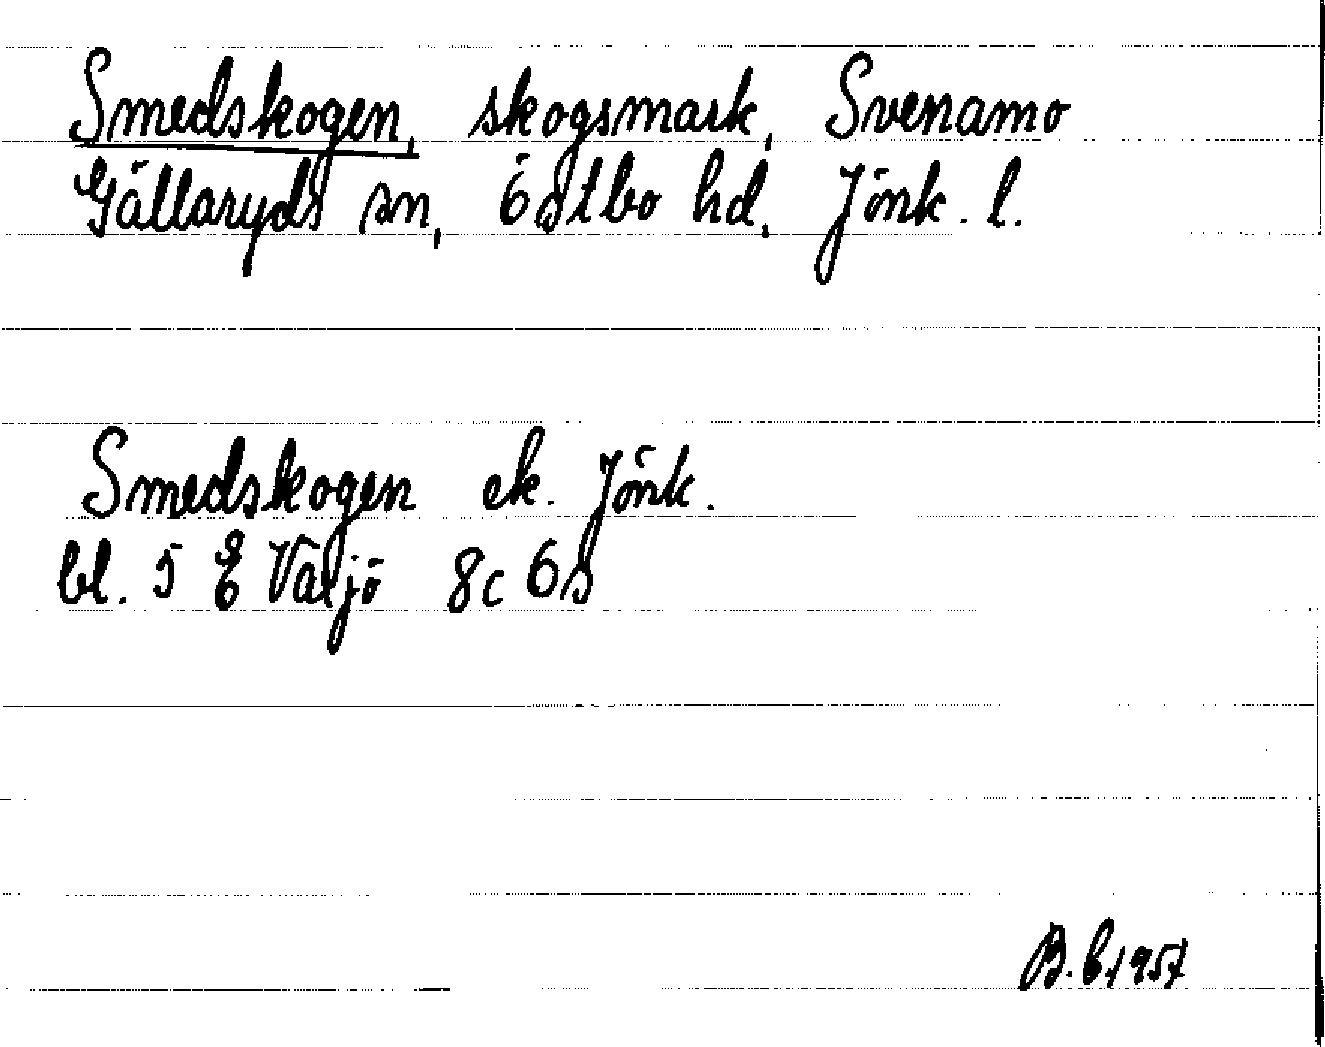 Smedskogen, skogsmark, Svenamo
Gällaryds sn, Östbo hd, Jönk. l.
Smedskogen ek. Jönk.
bl. 5 E Växjö 8c 6s
B.E 1957